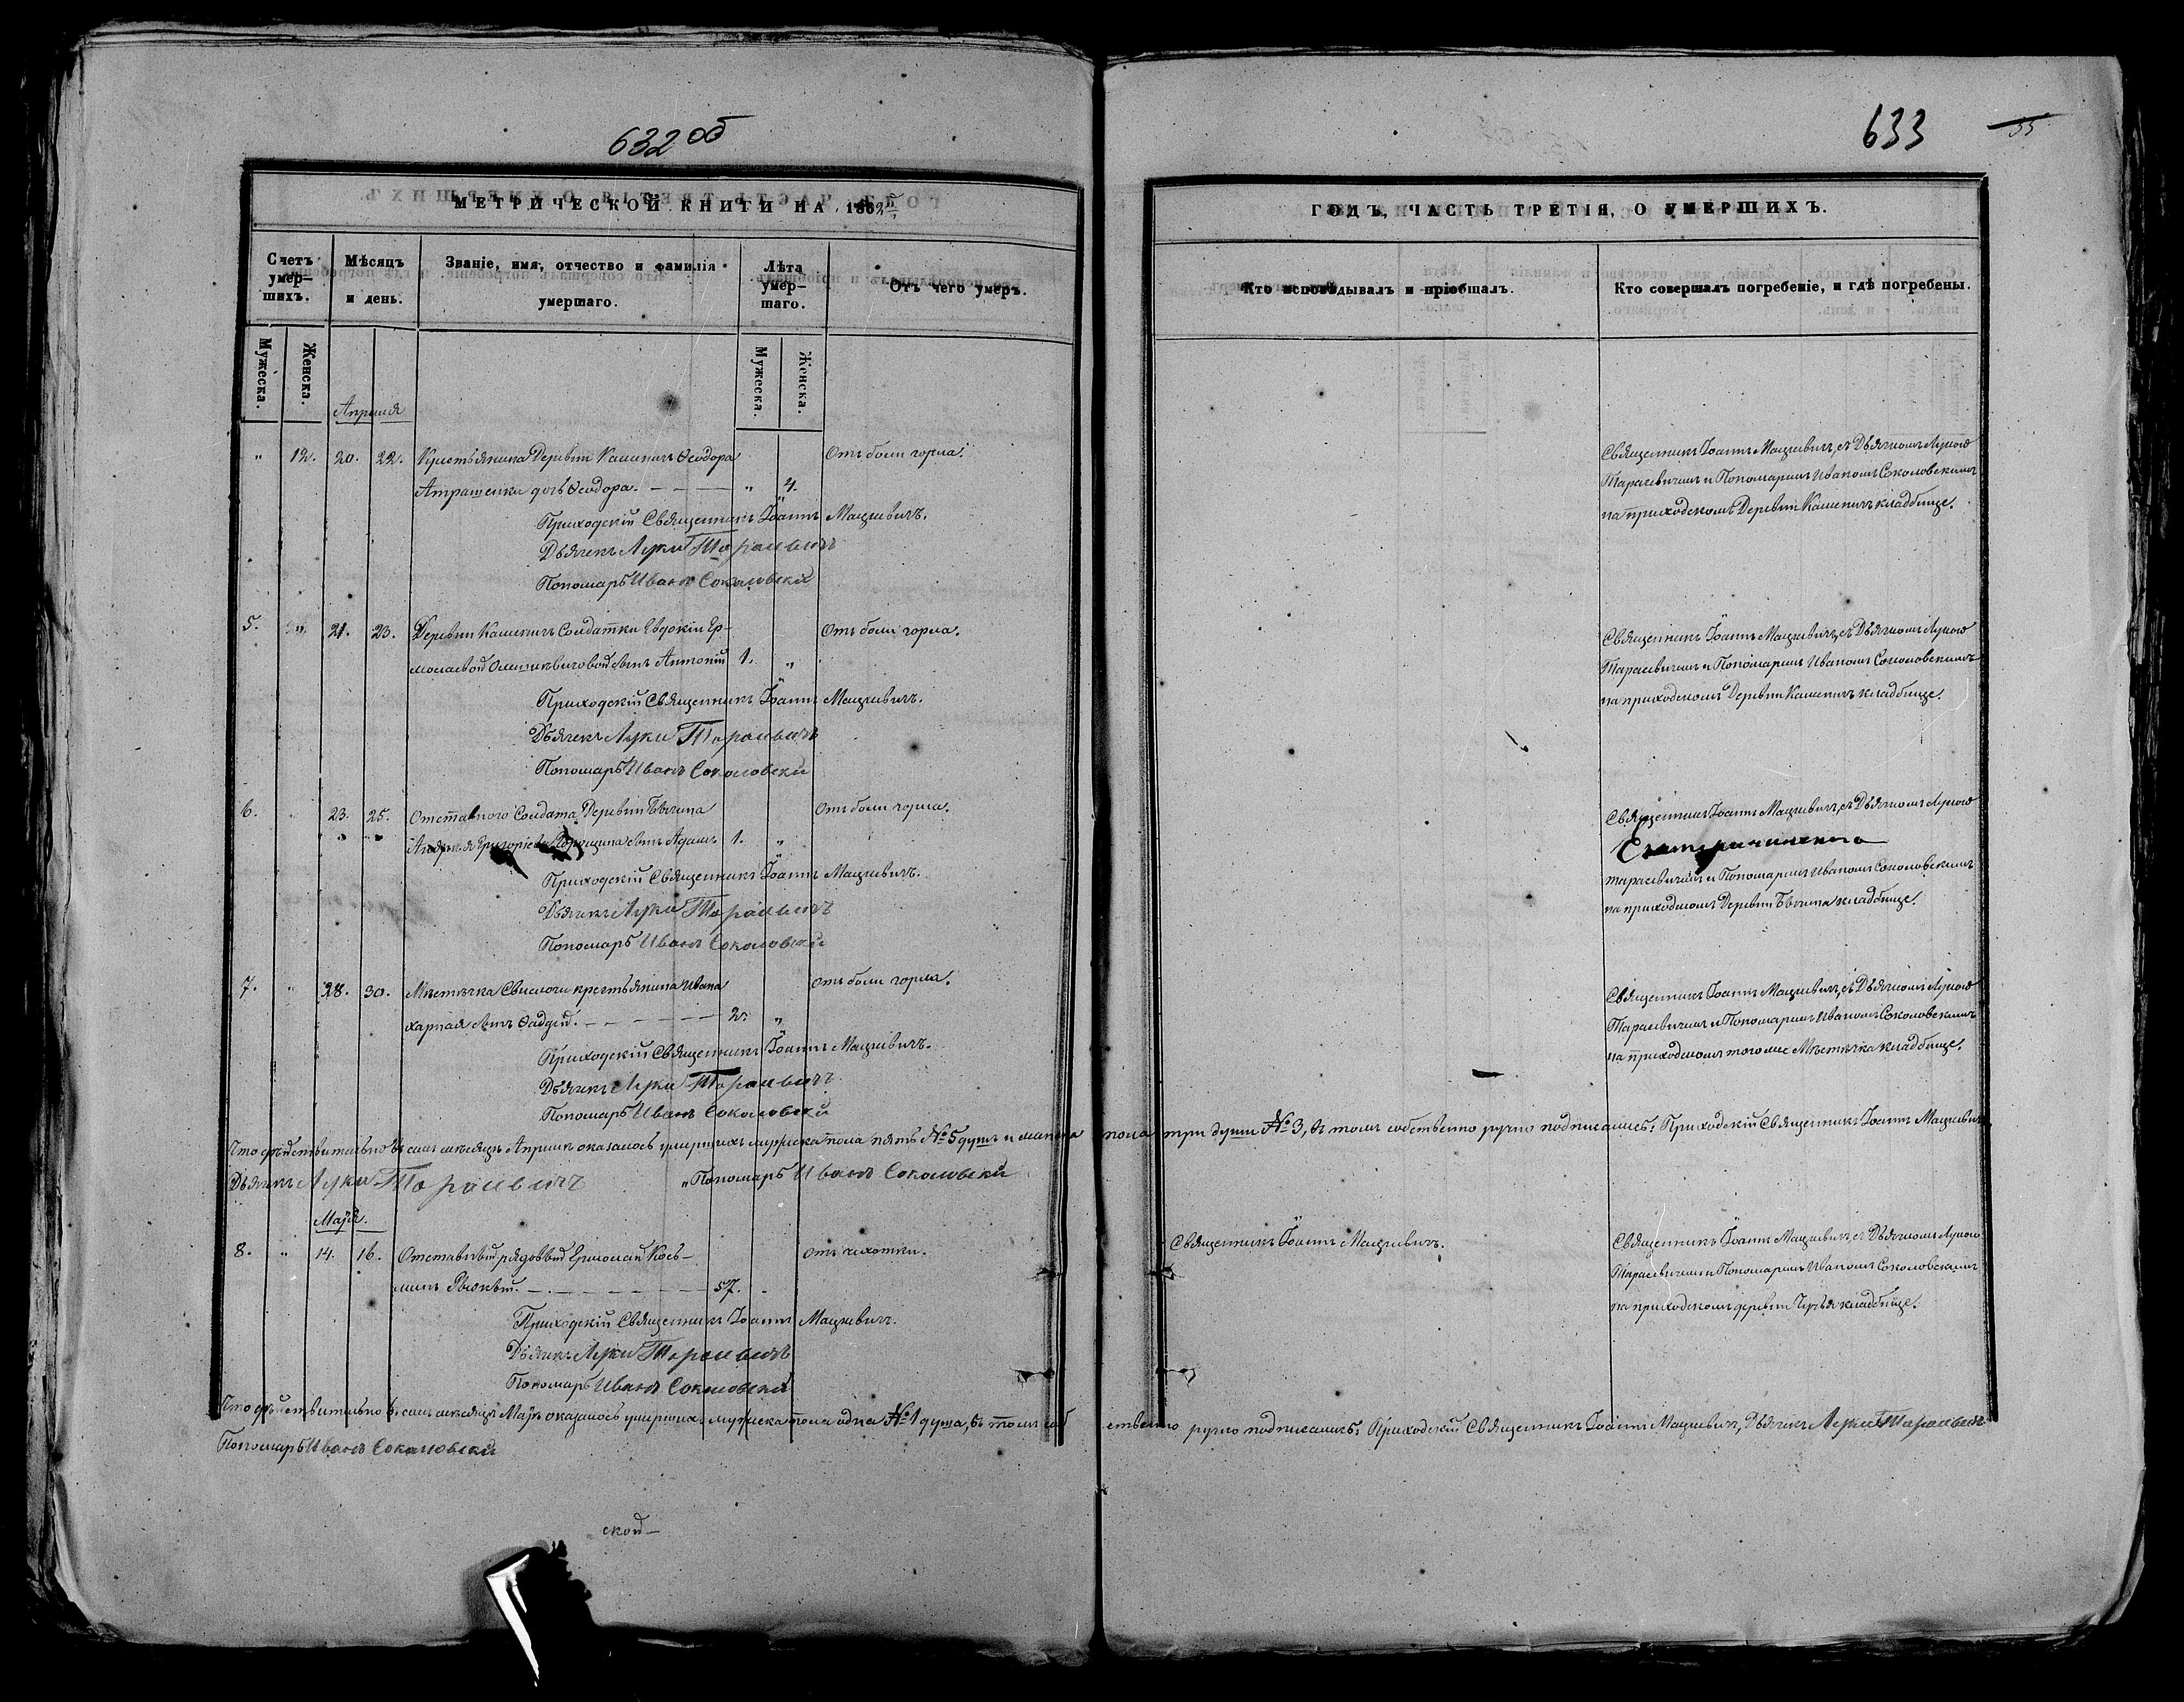 632 об
МЕТРИЧЕСКОЙ КНИГИ НА 1862й
Счетъ умер-шихъ.
Мѣсяцъ и день.
Званіе, имя, отчество и фамилія умершаго.
Лѣта умер-шаго.
Отъ чего умеръ.
Мужеска.
Женска.
Мужеска.
Женска.
Апрѣля
" 12. 20. 22. Крестьянина Деревни Каменичъ Ѳеодора Отъ боли горла.
Атрашенки дочь Ѳеодора. — — — " 4.
Приходскій Священникъ Іоаннъ Мацкевичъ.
Дьячекъ Луки Тарасевичъ
Пономарь Иванъ Соколовскій
5. " 21. 23. Деревни Каменичъ Солдатки Евдокіи Ер- Отъ боли горла.
молаевой сынъ Антоній 1. "
Приходскій Священникъ Іоаннъ Мацкевичъ.
Дьячекъ Луки Тарасевичъ
Пономарь Иванъ Соколовскій
6. " 23. 25. Отставного Солдата Деревни Бычина Отъ боли горла.
Андрея Григоріева сынъ Адамъ 1. "
Приходскій Священникъ Іоаннъ Мацкевичъ.
Дьячекъ Луки Тарасевичъ
Пономарь Иванъ Соколовскій
7. " 28. 30. Мѣстечка Свислочи крестьянина Ивана Отъ боли горла.
сынъ Ѳадей. — — — — — 2. "
Приходскій Священникъ Іоаннъ Мацкевичъ.
Дьячекъ Луки Тарасевичъ
Пономарь Иванъ Соколовскій
Что дѣйствительно въ семъ мѣсяцѣ Апрѣлѣ оказалось умершихъ мужеска пола пять № 5 душъ и женска
Дьячекъ Луки Тарасевичъ "Пономарь Иванъ Соколовскій
Маія.
8. " 14. 16. Отставный рядовый Ермолай Кось- отъ чахотки.
минъ — — — — — — 57. "
Приходскій Священникъ Іоаннъ Мацкевичъ.
Дьячекъ Луки Тарасевичъ
Пономарь Иванъ Соколовскій
Что дѣйствительно въ семъ мѣсяцѣ Маіѣ оказалось умершихъ мужеска пола одна № 1 душа, въ томъ соб
Пономарь Иванъ Соколовскій
ской—
633
55
ГОДЪ, ЧАСТЬ ТРЕТІЯ, О УМЕРШИХЪ.
Кто исповѣдывалъ и пріобщалъ.
Кто совершалъ погребеніе, и гдѣ погребены.
Священникъ Іоаннъ Мацкевичъ, съ Дьячкомъ Лукою
Тарасевичемъ и Пономаремъ Иваномъ Соколовскимъ
на приходскомъ Деревни Каменичъ кладбище.
Священникъ Іоаннъ Мацкевичъ, съ Дьячкомъ Лукою
Тарасевичемъ и Пономаремъ Иваномъ Соколовскимъ
на приходскомъ Деревни Каменичъ кладбище.
Священникъ Іоаннъ Мацкевичъ, съ Дьячкомъ Лукою
Тарасевичемъ и Пономаремъ Иваномъ Соколовскимъ
на приходскомъ Деревни Бычина кладбище.
Священникъ Іоаннъ Мацкевичъ, съ Дьячкомъ Лукою
Тарасевичемъ и Пономаремъ Иваномъ Соколовскимъ
на приходскомъ того же Мѣстечка кладбище.
пола три души № 3, въ томъ собственно ручно подписались: Приходскій Священникъ Іоаннъ Мацкевичъ
Священникъ Іоаннъ Мацкевичъ.
Священникъ Іоаннъ Мацкевичъ, съ Дьячкомъ Лукою
Тарасевичемъ и Пономаремъ Иваномъ Соколовскимъ
на приходскомъ деревни кладбище.
ственно ручно подписались: Приходскій Священникъ Іоаннъ Мацкевичъ, Дьячекъ Луки Тарасевичъ